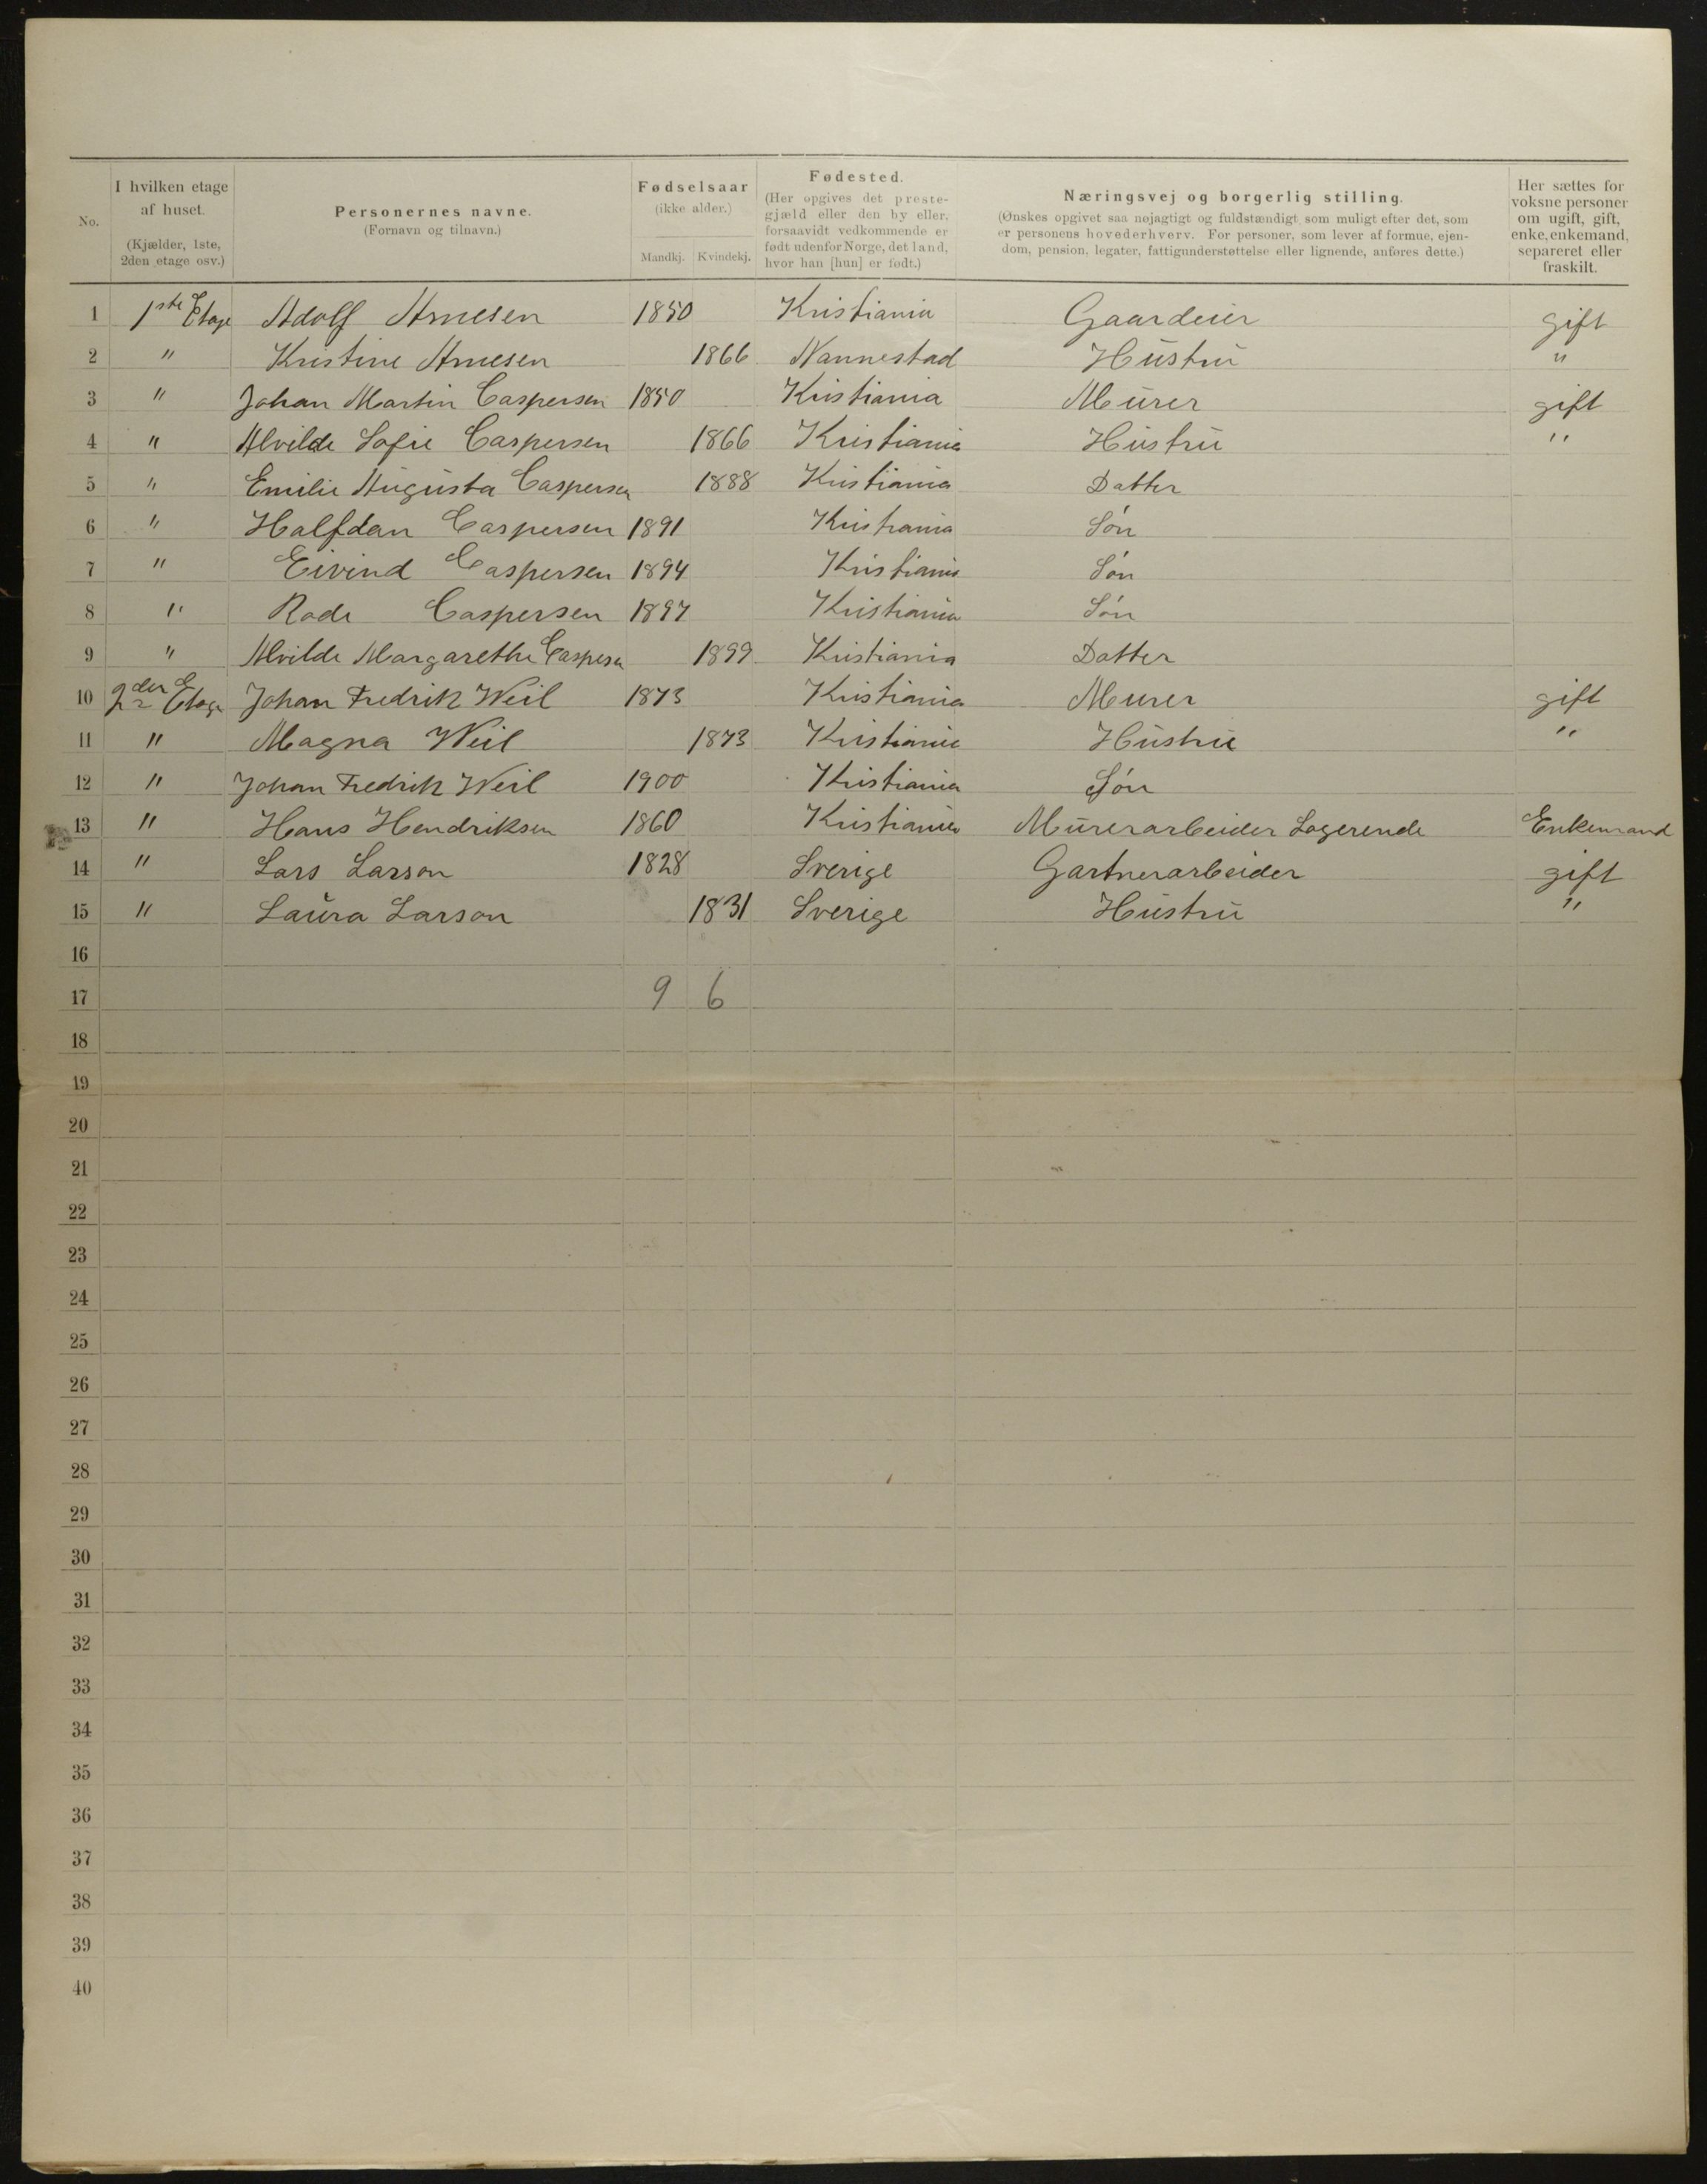 No.
I hvilken etage af huset. (Kjælder, 1ste, 2den etage osv.)
Personernes navne. (Fornavn og tilnavn.)
Fødselsaar (ikke alder.) Mandkj. Kvindekj.
Fødested. (Her opgives det prestegjæld eller den by eller, forsaavidt vedkommende er født udenfor Norge, det land, hvor han [hun] er født.)
Næringsvej og borgerlig stilling. (Ønskes opgivet saa nøjagtigt og fuldstændigt som muligt efter det, som er personens hovederhverv. For personer, som lever af formue, ejendom, pension, legater, fattigunderstøttelse eller lignende, anføres dette.)
Her sættes for voksne personer om ugift, gift, enke, enkemand, separeret eller fraskilt.
1 1ste Etage Adolf Arnesen 1850 Kristiania Gaardeier gift
2 " Kristine Arnesen 1866 Nannestad Hustru "
3 " Johan Martin Caspersen 1850 Kristiania Murer gift
4 " Alvilde Sofie Caspersen 1866 Kristiania Hustru "
5 " Emilie Augusta Caspersen 1888 Kristiania Datter
6 " Halfdan Caspersen 1891 Kristiania Søn
7 " Eivind Caspersen 1894 Kristiania Søn
8 " Rode Caspersen 1897 Kristiania Søn
9 " Alvilde Margarethe Caspersen 1899 Kristiania Datter
10 2den Etage Johan Fredrik Weil 1873 Kristiania Murer gift
11 " Magna Weil 1873 Kristiania Hustru "
12 " Johan Fredrik Weil 1900 Kristiania Søn
13 " Hans Hendriksen 1860 Kristiania Murerarbeider Logerende Enkemand
14 " Lars Larson 1828 Sverige Gartnerarbeider gift
15 " Laura Larson 1831 Sverige Hustru "
16
17 9 6
18
19
20
21
22
23
24
25
26
27
28
29
30
31
32
33
34
35
36
37
38
39
40